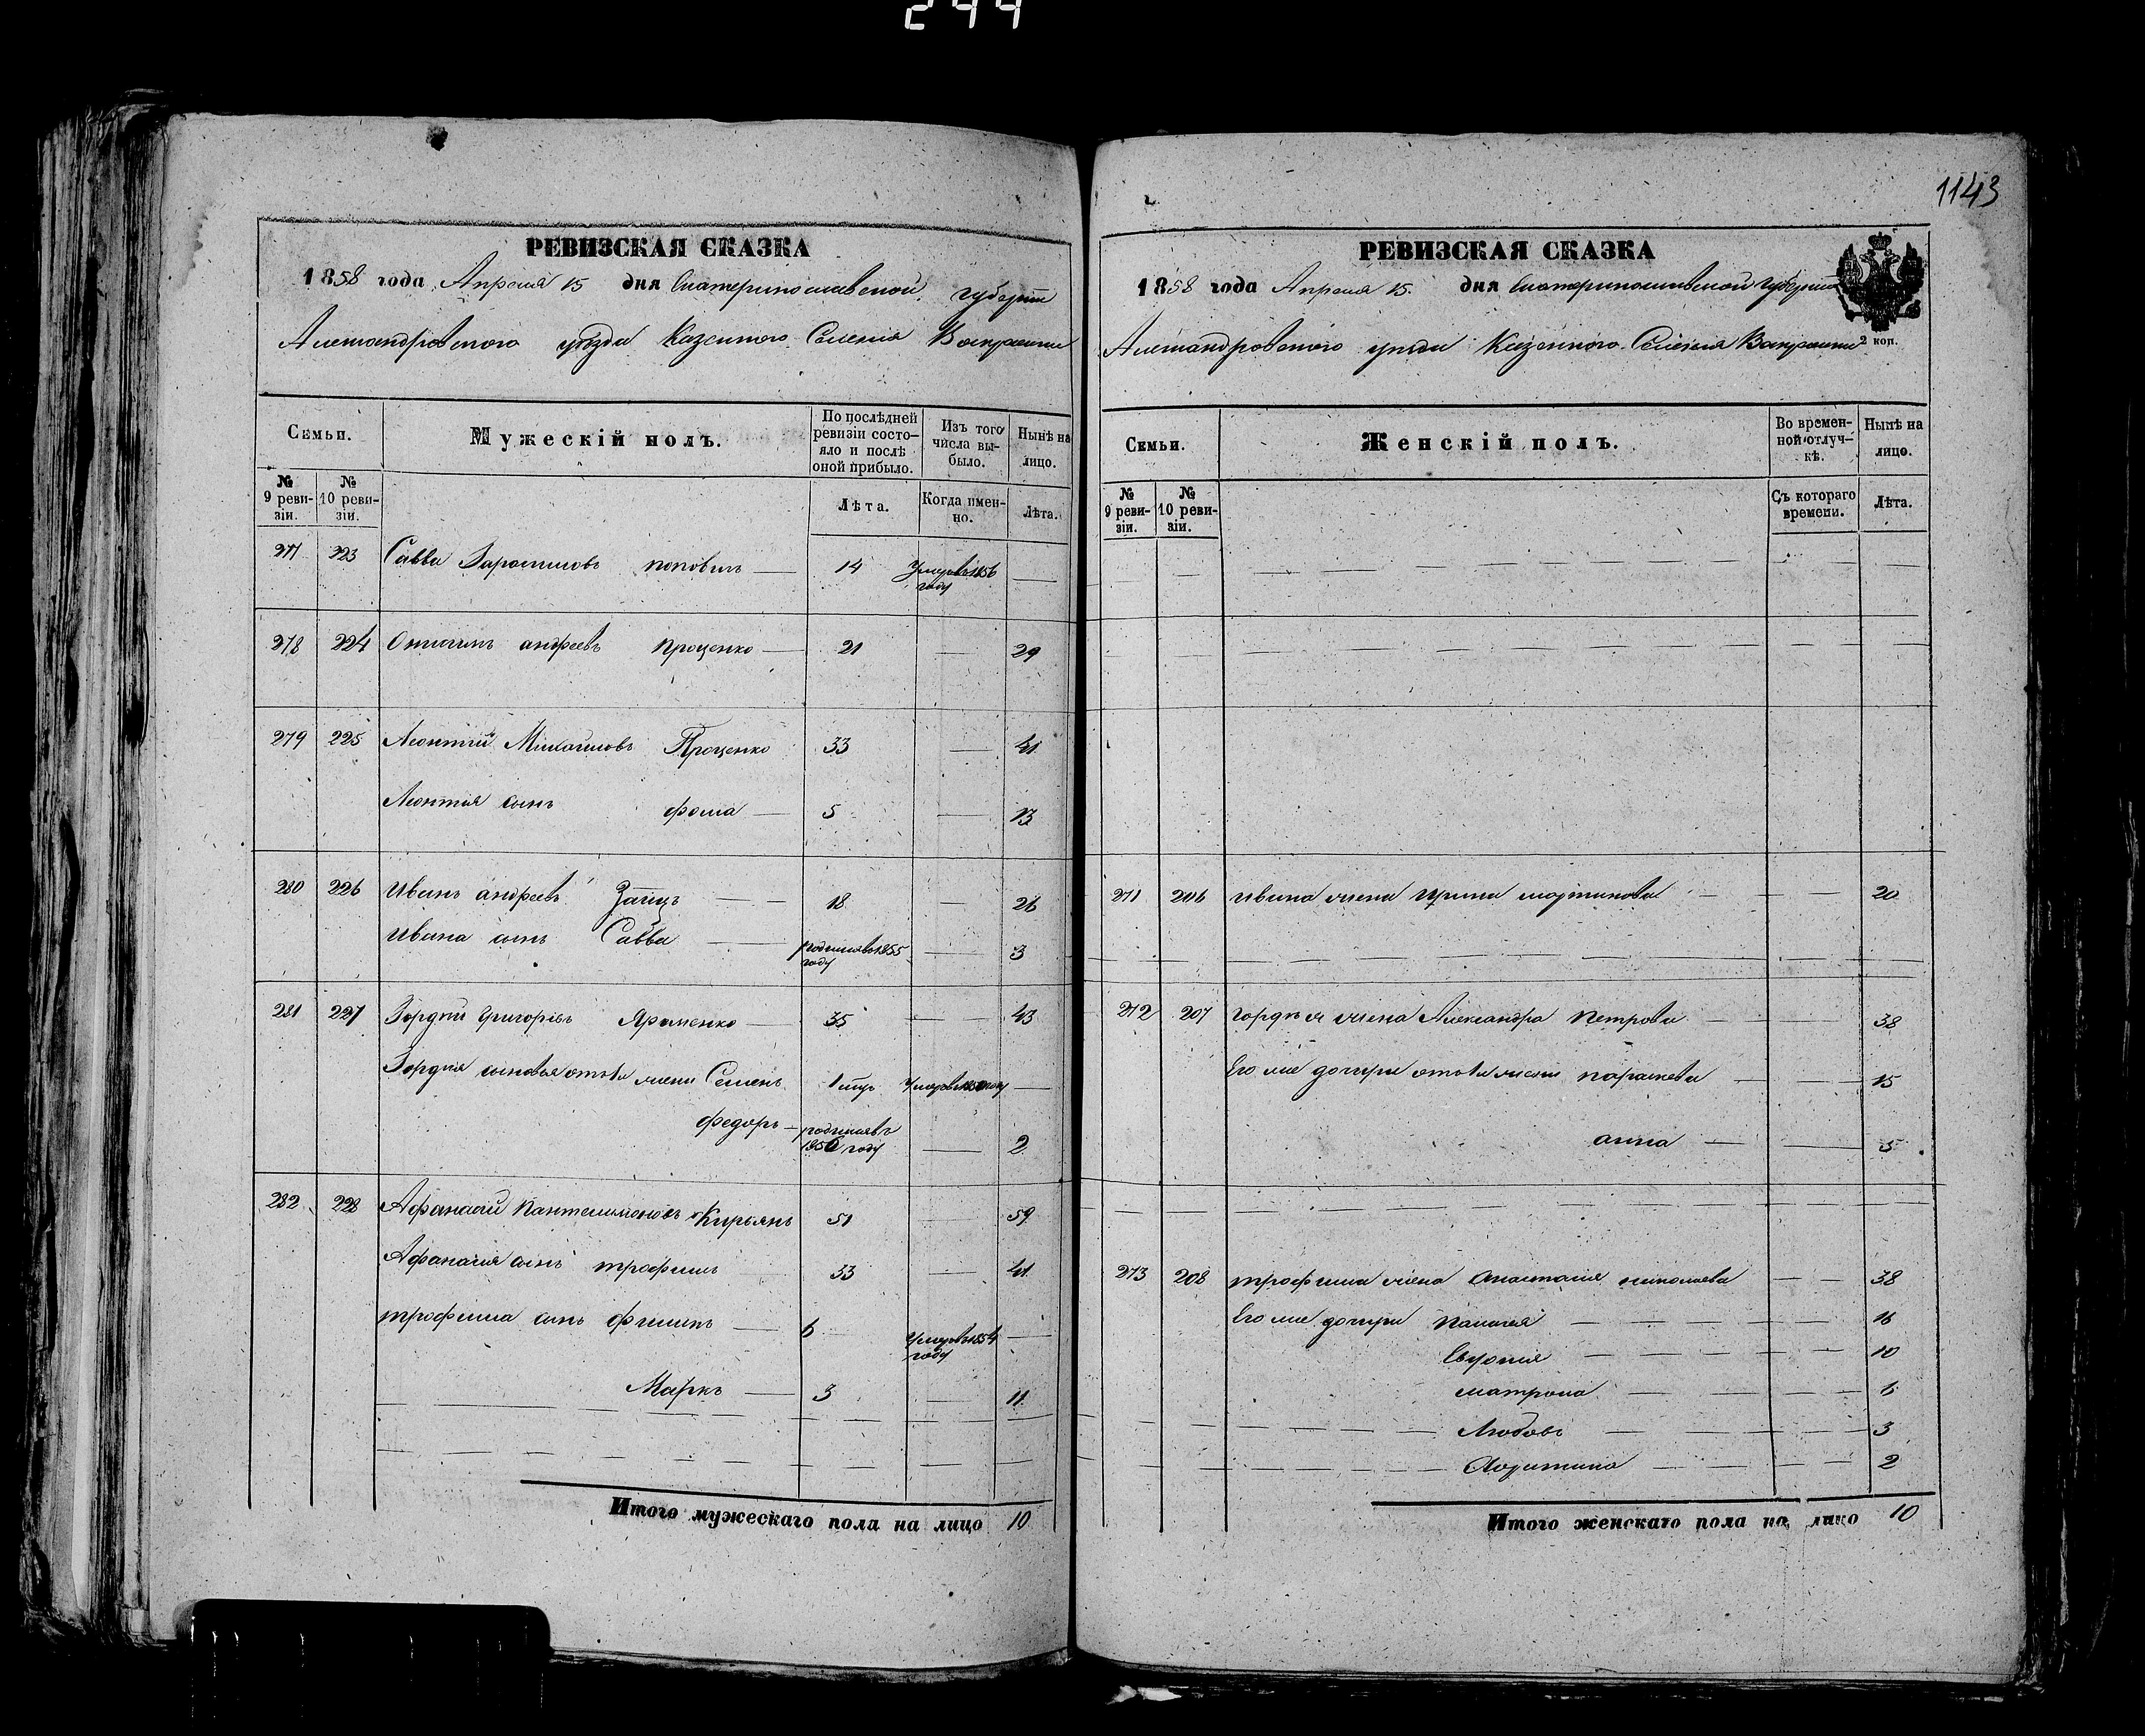 244
1143
РЕВИЗСКАЯ СКАЗКА
1858 года Апреля 15 дня Екатеринославской губерніи
Александровского уѣзда Казенного Селенія Воскресенки
Семьи.
Мужескій полъ.
По послѣдней ревизіи состояло и послѣ оной прибыло.
Изъ того числа выбыло.
Нынѣ на лицо.
№ 9 ревизіи.
№ 10 ревизіи.
Лѣта.
Когда именно.
Лѣта.
277 223 Савва Герасимовъ поповичъ — 14 Умеръ въ 1856 году —
278 224 Онисимъ андреевъ Проценко — 21 — 29
279 225 Леонтій Михайловъ Проценко 33 — 41
Леонтія сынъ фома — 5 — 13
280 226 Иванъ андреевъ Заицъ — — 18 — 26
Ивана сынъ Савва — родился въ 1855 году — 3
281 227 Гордѣй Григорьевъ Яременко — 35 — 43
Гордѣя сыновья отъ 1й жены Семенъ 1 Умеръ году —
федоръ — родился въ 1856 году — 2
282 228 Афанасій Пантелимоновъ Кирьянъ 51 — 59
Афанасія сынъ трофимъ 33 — 41
трофима сынъ филипъ — 6 Умеръ въ 1854 году —
Маркъ — 3 — 11
Итого мужескаго пола на лицо 10
РЕВИЗСКАЯ СКАЗКА
1858 года Апреля 15 дня Екатеринославской губерніи
Александровского уѣзда Казенного Селенія Воскресенки
2 коп.
Семьи.
Женскій полъ.
Во временной отлучкѣ.
Нынѣ на лицо.
№ 9 ревизіи.
№ 10 ревизіи.
Съ котораго времени.
Лѣта.
271 206 Ивана жена Ирина мартинова — — 20
272 207 гордѣя жена Александра Петрова — — 38
Его же дочери отъ 1й жены параскева — — 15
анна — — 5
273 208 трофима жена Анастасія николаева — — 38
Его же дочери Пелагея — — 16
Евдокия — — 10
матрона — — 6
Любовь — — 3
— — 2
Итого женскаго пола на лицо 10